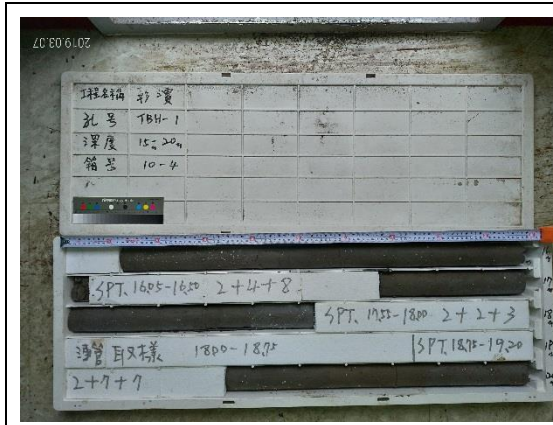 2019.03.07
工程名稱 彰濱
孔号 TBH-1
深度 15~20m
箱号 10-4
SPT. 16.05-16.50 2+4+8
SPT. 17.55-18.00 2+2+3
薄管取樣 18.00-18.75 SPT. 18.75-19.20
2+7+7